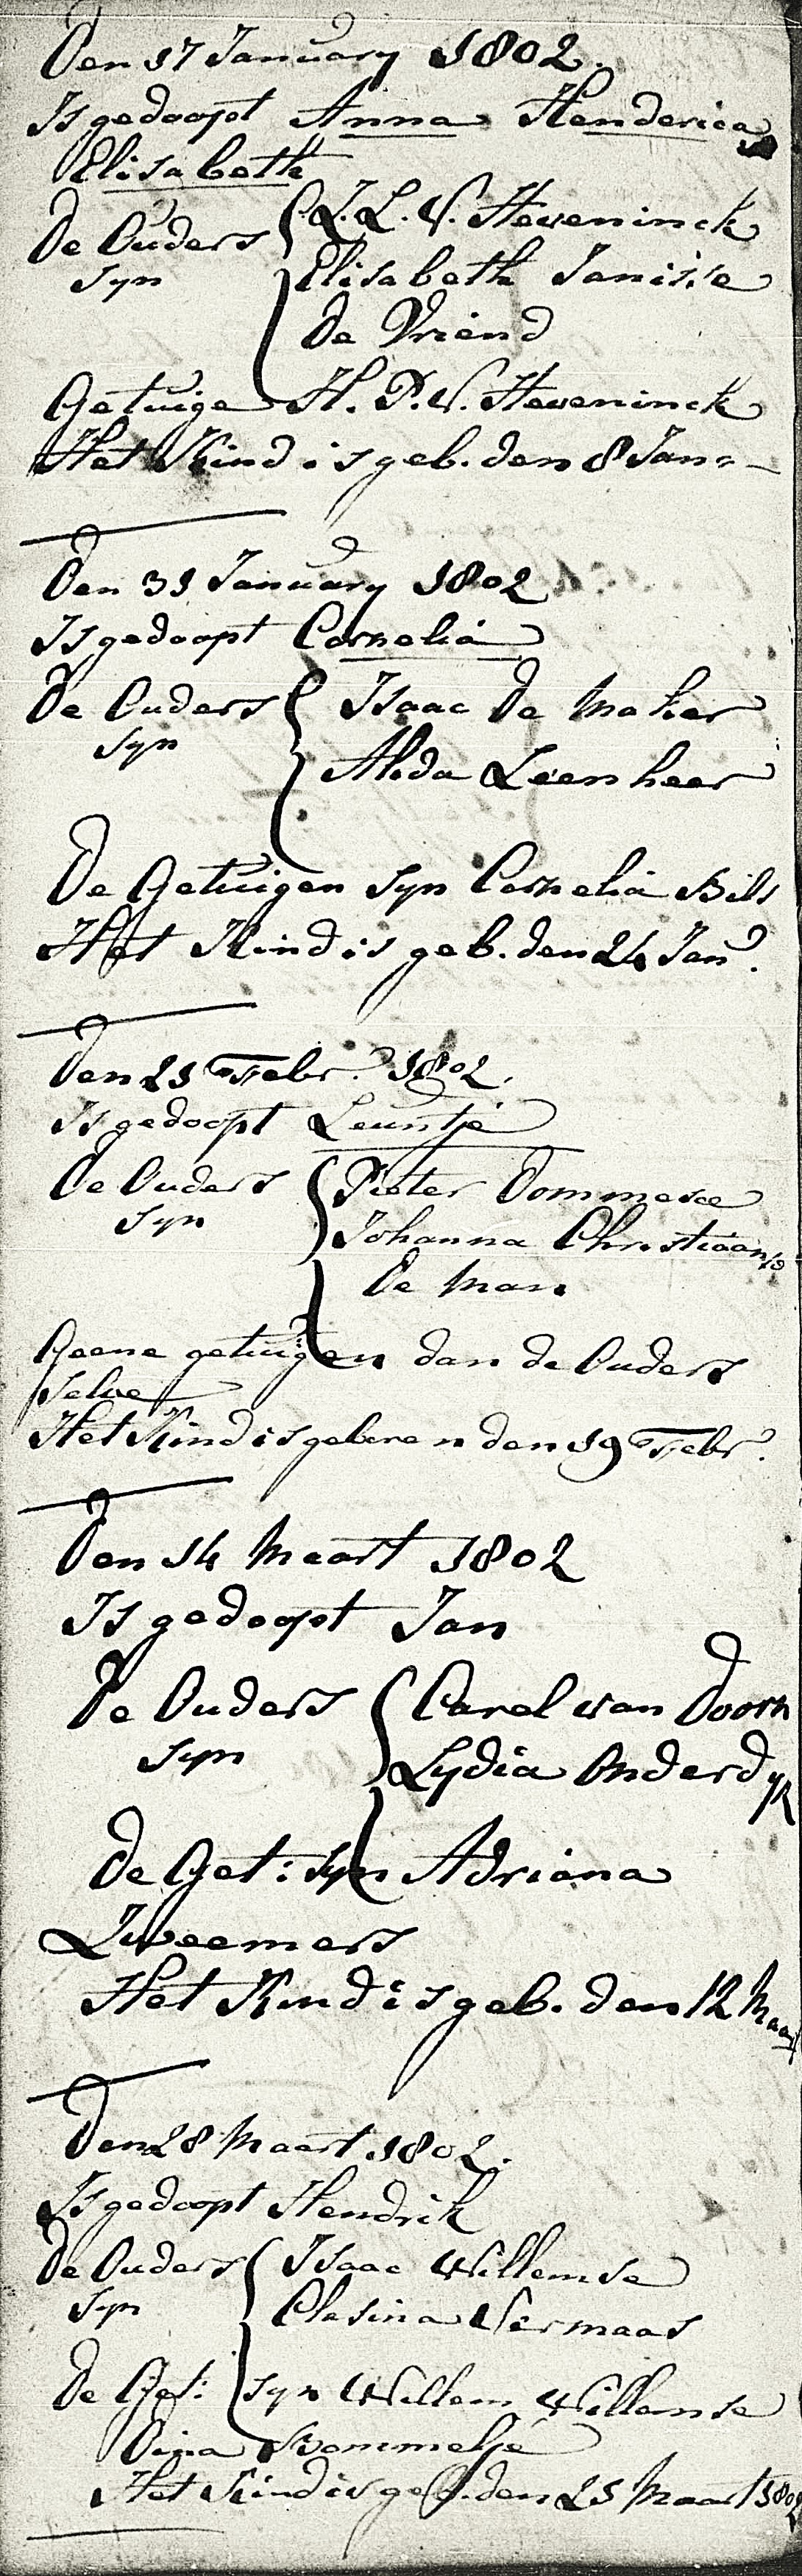 Den 17 January 1802.
Is gedoopt Anna Henderica
Elisabeth
De Ouders J. L. V. Heveninck
syn Elisabeth Janisse
De Vriend
Getuige H. P. V. Heveninck
Het Kind is geb. den 8 Jan.
Den 31 January 1802
Is gedoopt Cornelia
De Ouders Isaac De Maker
syn Alida Leenheer
De Getuigen syn Cornelia Bils
Het Kind is geb. den 24 Jan.
Den 21 Febr. 1802.
Is gedoopt Leuntje
De Ouders Pieter Dommese
syn Johanna Christiaan
De Man
Geene getuigen dan de Ouders
selve
Het Kind is geboren den 19 Febr.
Den 14 Maart 1802
Is gedoopt Jan
De Ouders Carel van Doorn
syn Lydia Onderdyk
De Get: syn Adriana
Zweemers
Het Kind is geb. den 12 Maart
Den 28 Maart 1802.
Is gedoopt Hendrik
De Ouders Isaac Willemse
syn Clasina Vermaas
De Get: syn Willem Willemse
Pina Bommeljé
Het Kind is geb. den 25 Maart 1802